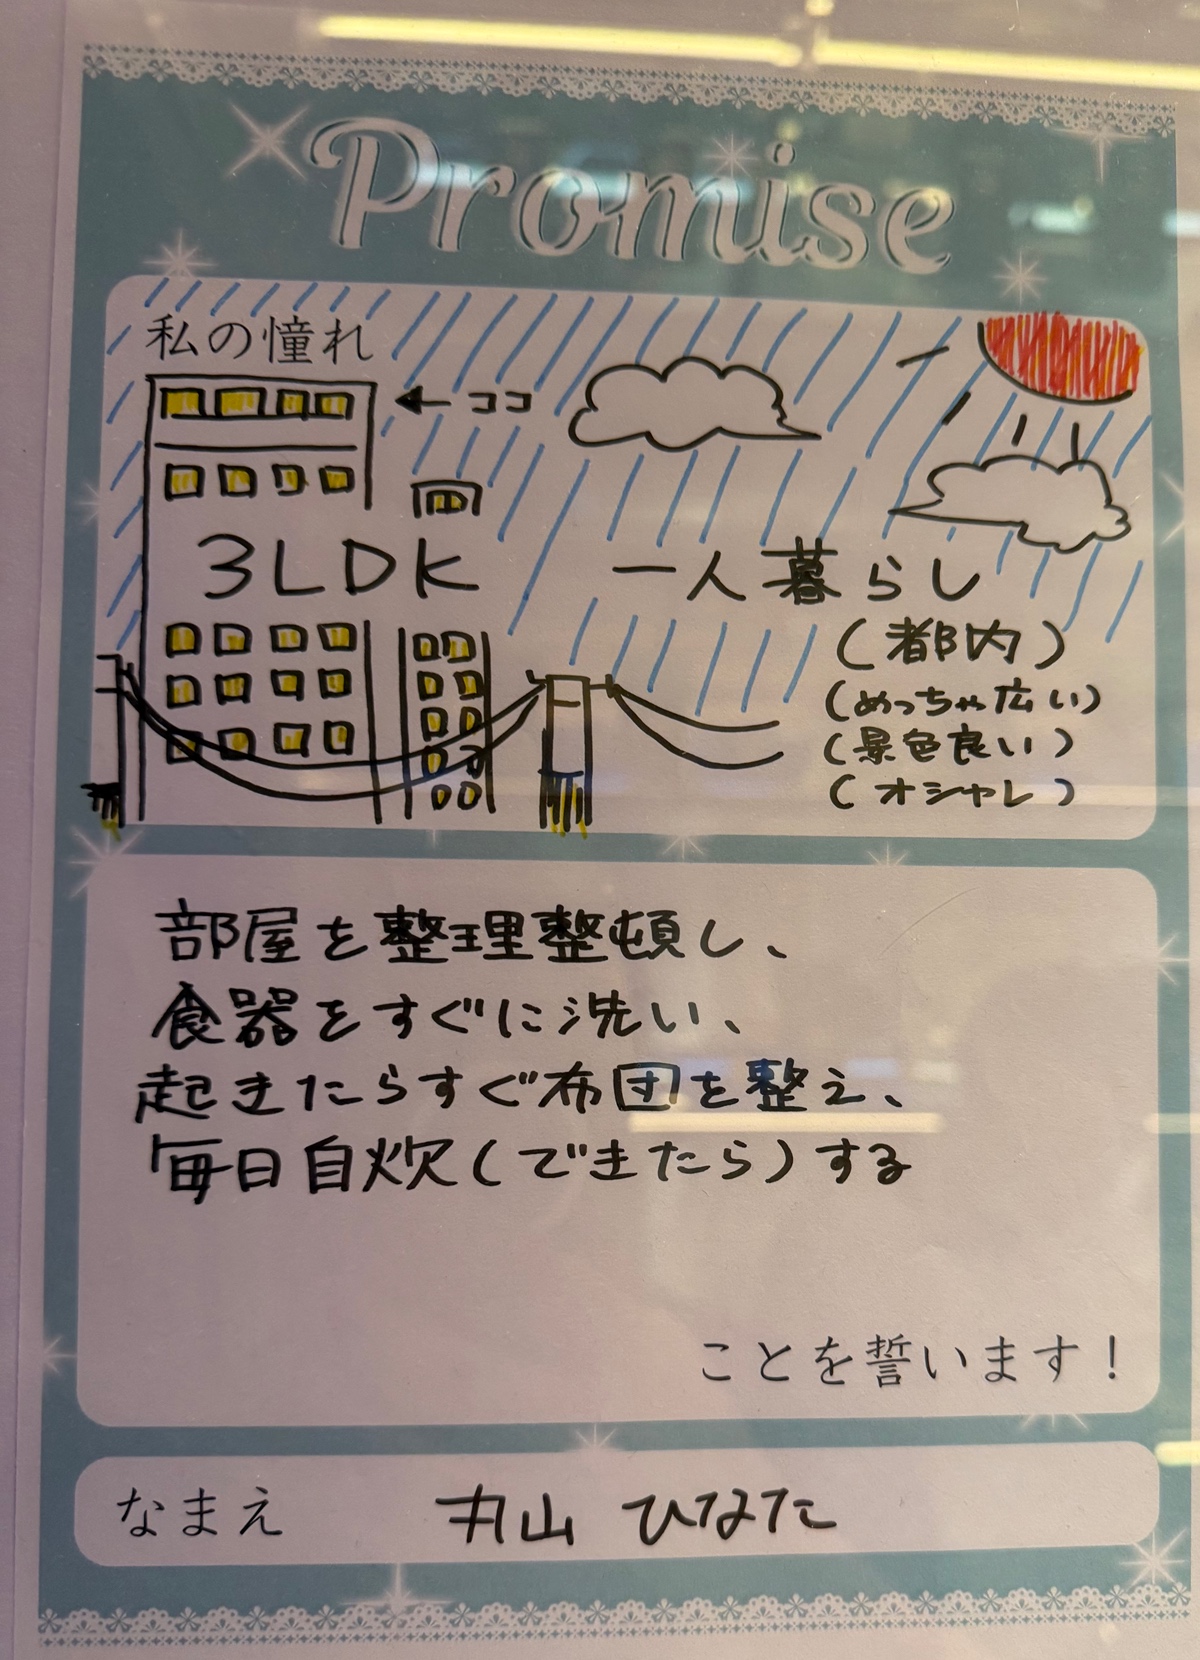 Promise
私の憧れ
←ココ
3LDK
一人暮らし
(都内)
(めっちゃ広い)
(景色良い)
(オシャレ)
部屋を整理整頓し、
食器をすぐに洗い、
起きたらすぐ布団を整え、
毎日自炊(できたら)する
ことを誓います!
なまえ 丸山 ひなた